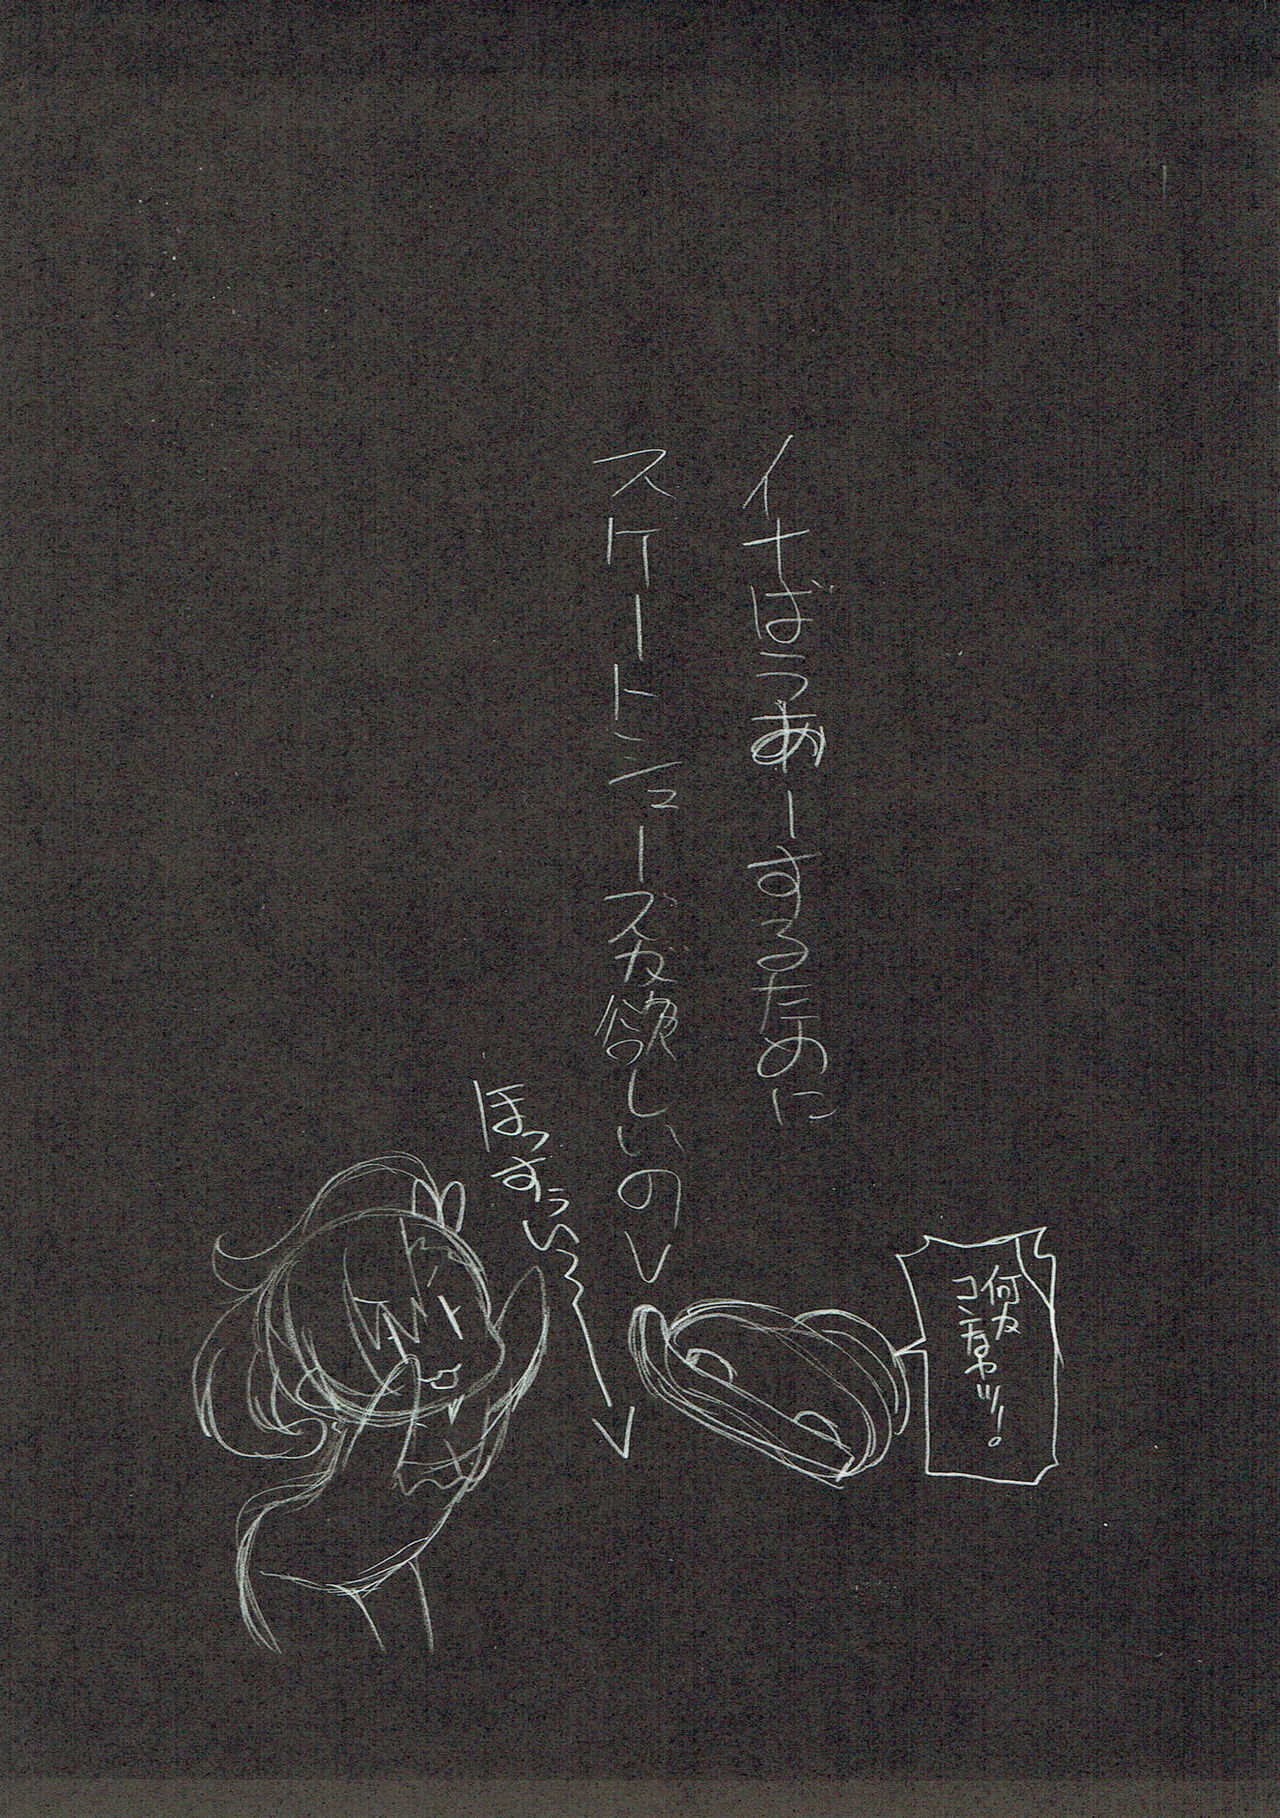 イナばうあーするために
スケートシューズが欲しいの
ほっすぅぃ〜
何か
コンなヤツ!。